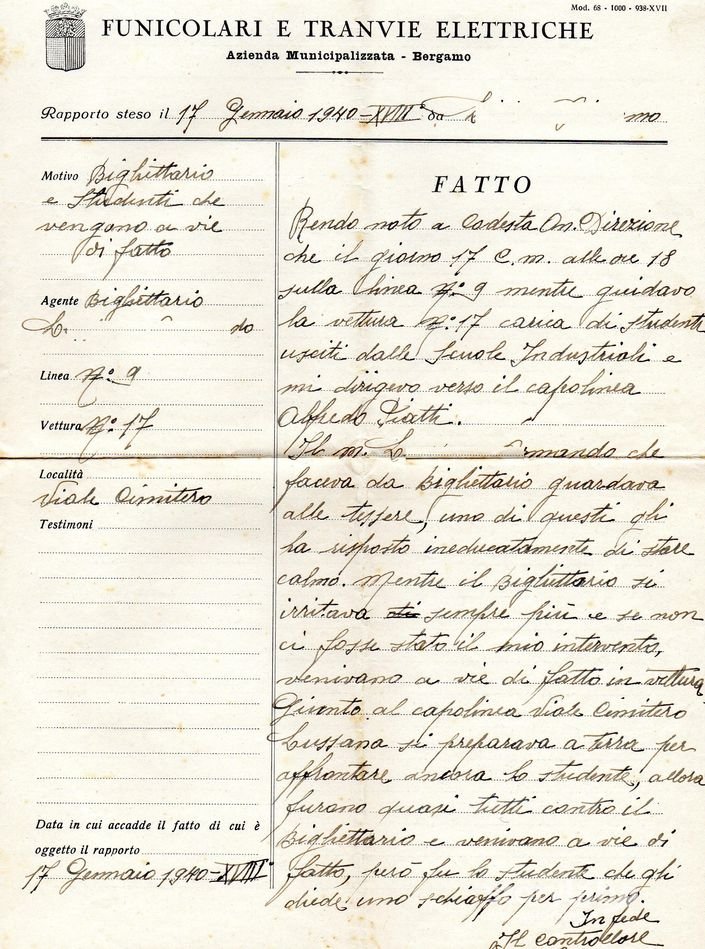 Mod. 68 - 1000 - 938-XVII
FUNICOLARI E TRANVIE ELETTRICHE
Azienda Municipalizzata - Bergamo
Rapporto steso il 17 Gennaio 1940-XVIII° da
Motivo Bighettario
e Studenti che
vengano a vie
di fatto
Agente Bighettario
Linea N° 9
Vettura N° 17
Località
Viale Cimitero
Testimoni
Data in cui accadde il fatto di cui è
oggetto il rapporto
17 Gennaio 1940-XVIII°
FATTO
Rendo noto a Codesta On. Direzione
che il giorno 17 C.m. alle ore 18
sulla linea N° 9 mentre guidavo
la vettura N° 17 carica di studenti
usciti dalle Scuole Industriali e
mi dirigevo verso il capolinea
Alfredo Piatti.
Il m. L rmando che
faceva da Bighettario guardava
alle tessere, uno di questi gli
ha risposto ineducatamente di stare
calmo. Mentre il Bighettario si
irritava sempre più e se non
ci fosse stato il mio intervento,
venivano a vie di fatto in vettura
Giunto al capolinea Viale Cimitero
Lussana si preparava a terra per
affrontare ancora lo studente, allora
furono quasi tutti contro il
Bighettario e venivano a vie di
fatto, però fu lo studente che gli
diede uno schiaffo per primo.
In fede
Il controllore